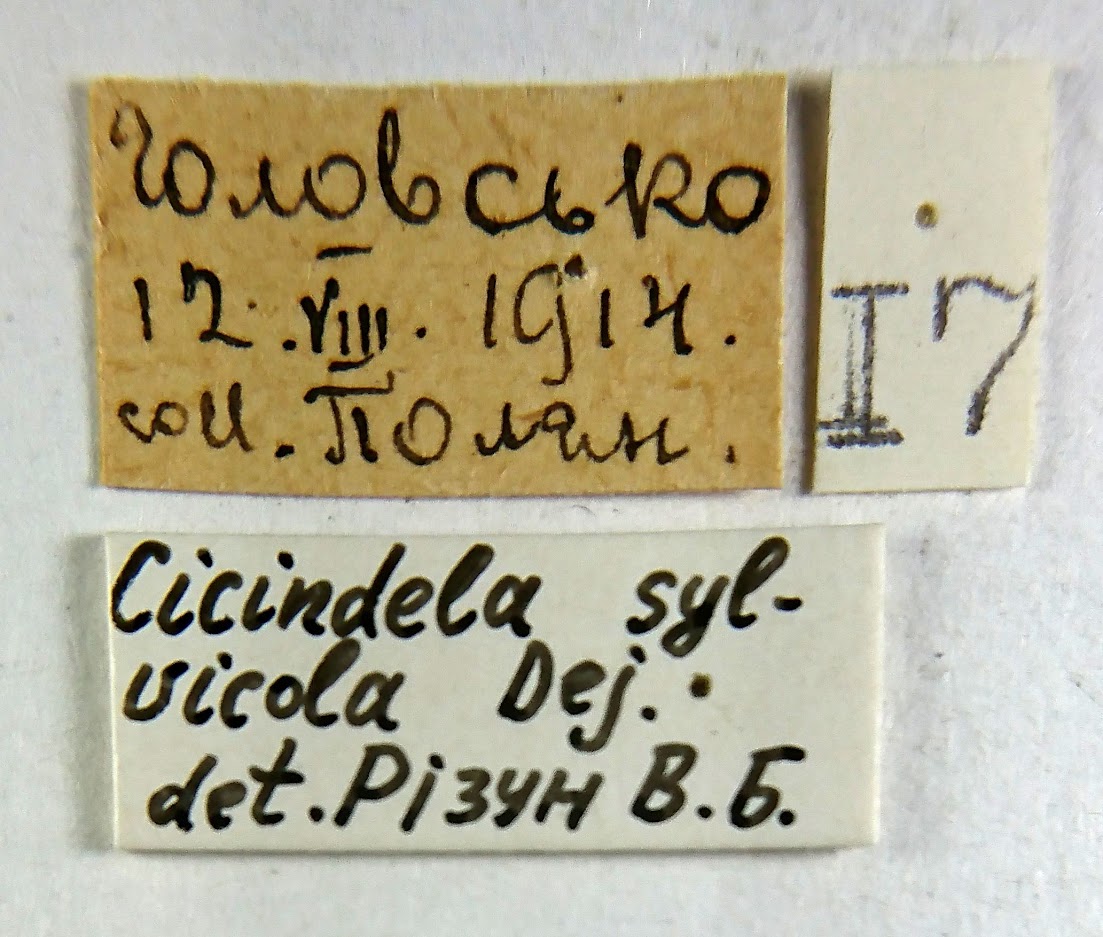 Головсько
12.VIII. 1914.
coll. Полян.
I7
Cicindela syl-
vicola Dej.
det. Різун В.Б.